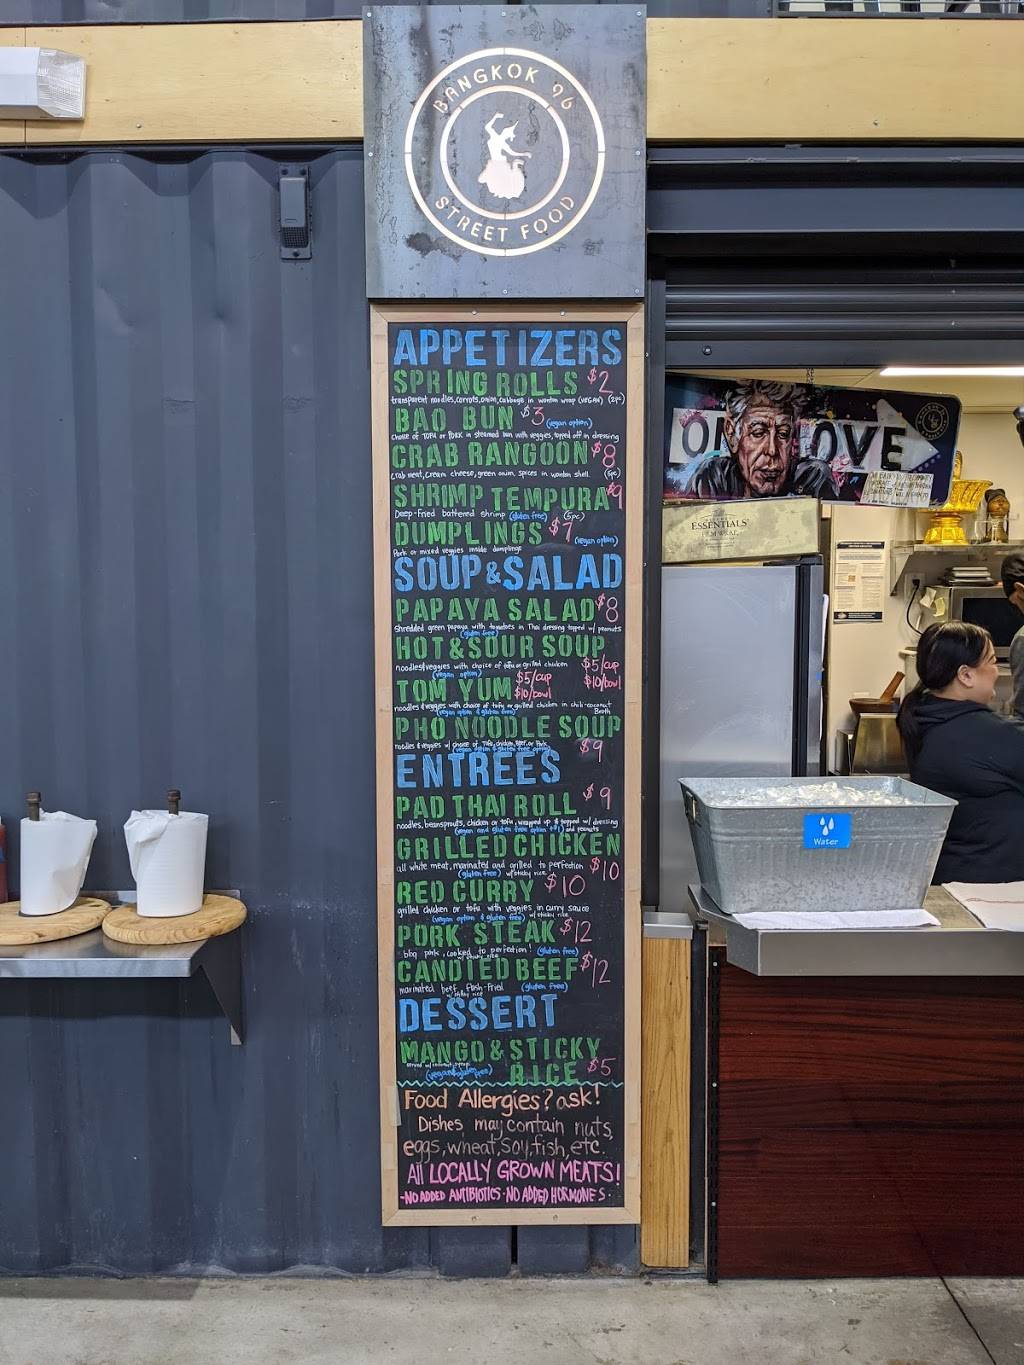 BANGKOK 96
STREET FOOD
APPETIZERS
SPRING ROLLS $2
transparent noodles, carrots, onion, cabbage in wonton wrap (VEGAN) (2pc)
BAO BUN $3 (vegan option)
choice of TOFU or PORK in steamed bun with veggies, topped off in dressing
CRAB RANGOON $8
crab meat, cream cheese, green onion, spices in wonton shell (5pc)
SHRIMP TEMPURA $9
Deep-Fried battered shrimp (gluten free) (5pc)
DUMPLINGS $7 (vegan option)
Pork or mixed veggies inside dumplings
SOUP & SALAD
PAPAYA SALAD $8
Shredded green papaya with tomatoes in Thai dressing topped w/ peanuts
(gluten free)
HOT & SOUR SOUP
noodles/veggies with choice of tofu or grilled chicken $5/cup
(vegan option) $10/bowl
TOM YUM $5/cup
$10/bowl
noodles & veggies with choice of tofu or grilled chicken in chili-coconut
(vegan option & gluten free) Broth
PHO NOODLE SOUP
noodles & veggies w/ choice of Tofu, chicken, Beef, or Pork $9
(vegan option & gluten free option)
ENTREES
PAD THAI ROLL $9
noodles, beansprouts, chicken or tofu, wrapped up & topped w/ dressing
(vegan and gluten free option +$1) and peanuts
GRILLED CHICKEN
all white meat, marinated and grilled to perfection $10
(gluten free) w/sticky rice
RED CURRY $10
grilled chicken or tofu with veggies in curry sauce
(vegan option & gluten free) w/sticky rice
PORK STEAK $12
bbq pork, cooked to perfection! (gluten free)
w/sticky rice
CANDIED BEEF $12
marinated beef, flash-fried (gluten free)
w/sticky rice
DESSERT
MANGO & STICKY
(vegan & gluten free) RICE $5
Food Allergies? ask!
Dishes may contain nuts,
eggs, wheat, soy, fish, etc.
All LOCALLY GROWN MEATS!
-NO ADDED ANTIBIOTICS - NO ADDED HORMONES -
ONE LOVE
ESSENTIALS
FILM WRAP
Water